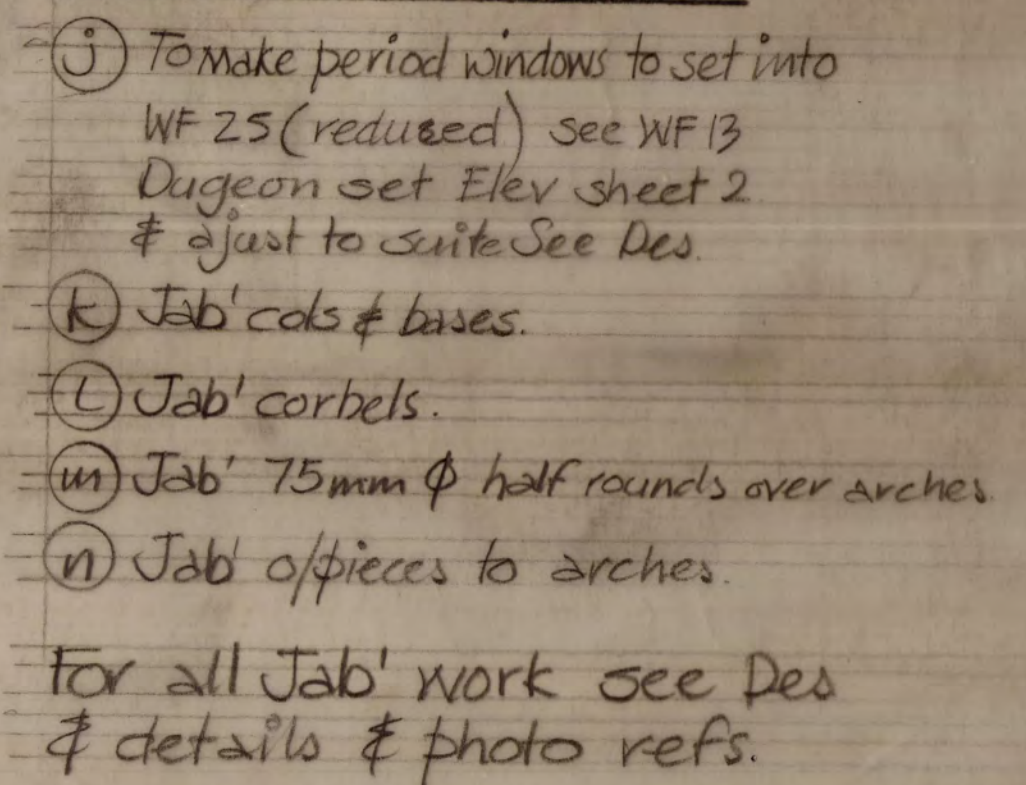 j To make period windows to set into
WF 25 (redused) see WF 13
Dugeon set Elev sheet 2
& ajust to suite See Des.
k Jab' cols & bases.
L Jab' corbels.
m Jab' 75mm φ half rounds over arches.
n Jab' o/pieces to arches.
For all Jab' work see Des
& details & photo refs.